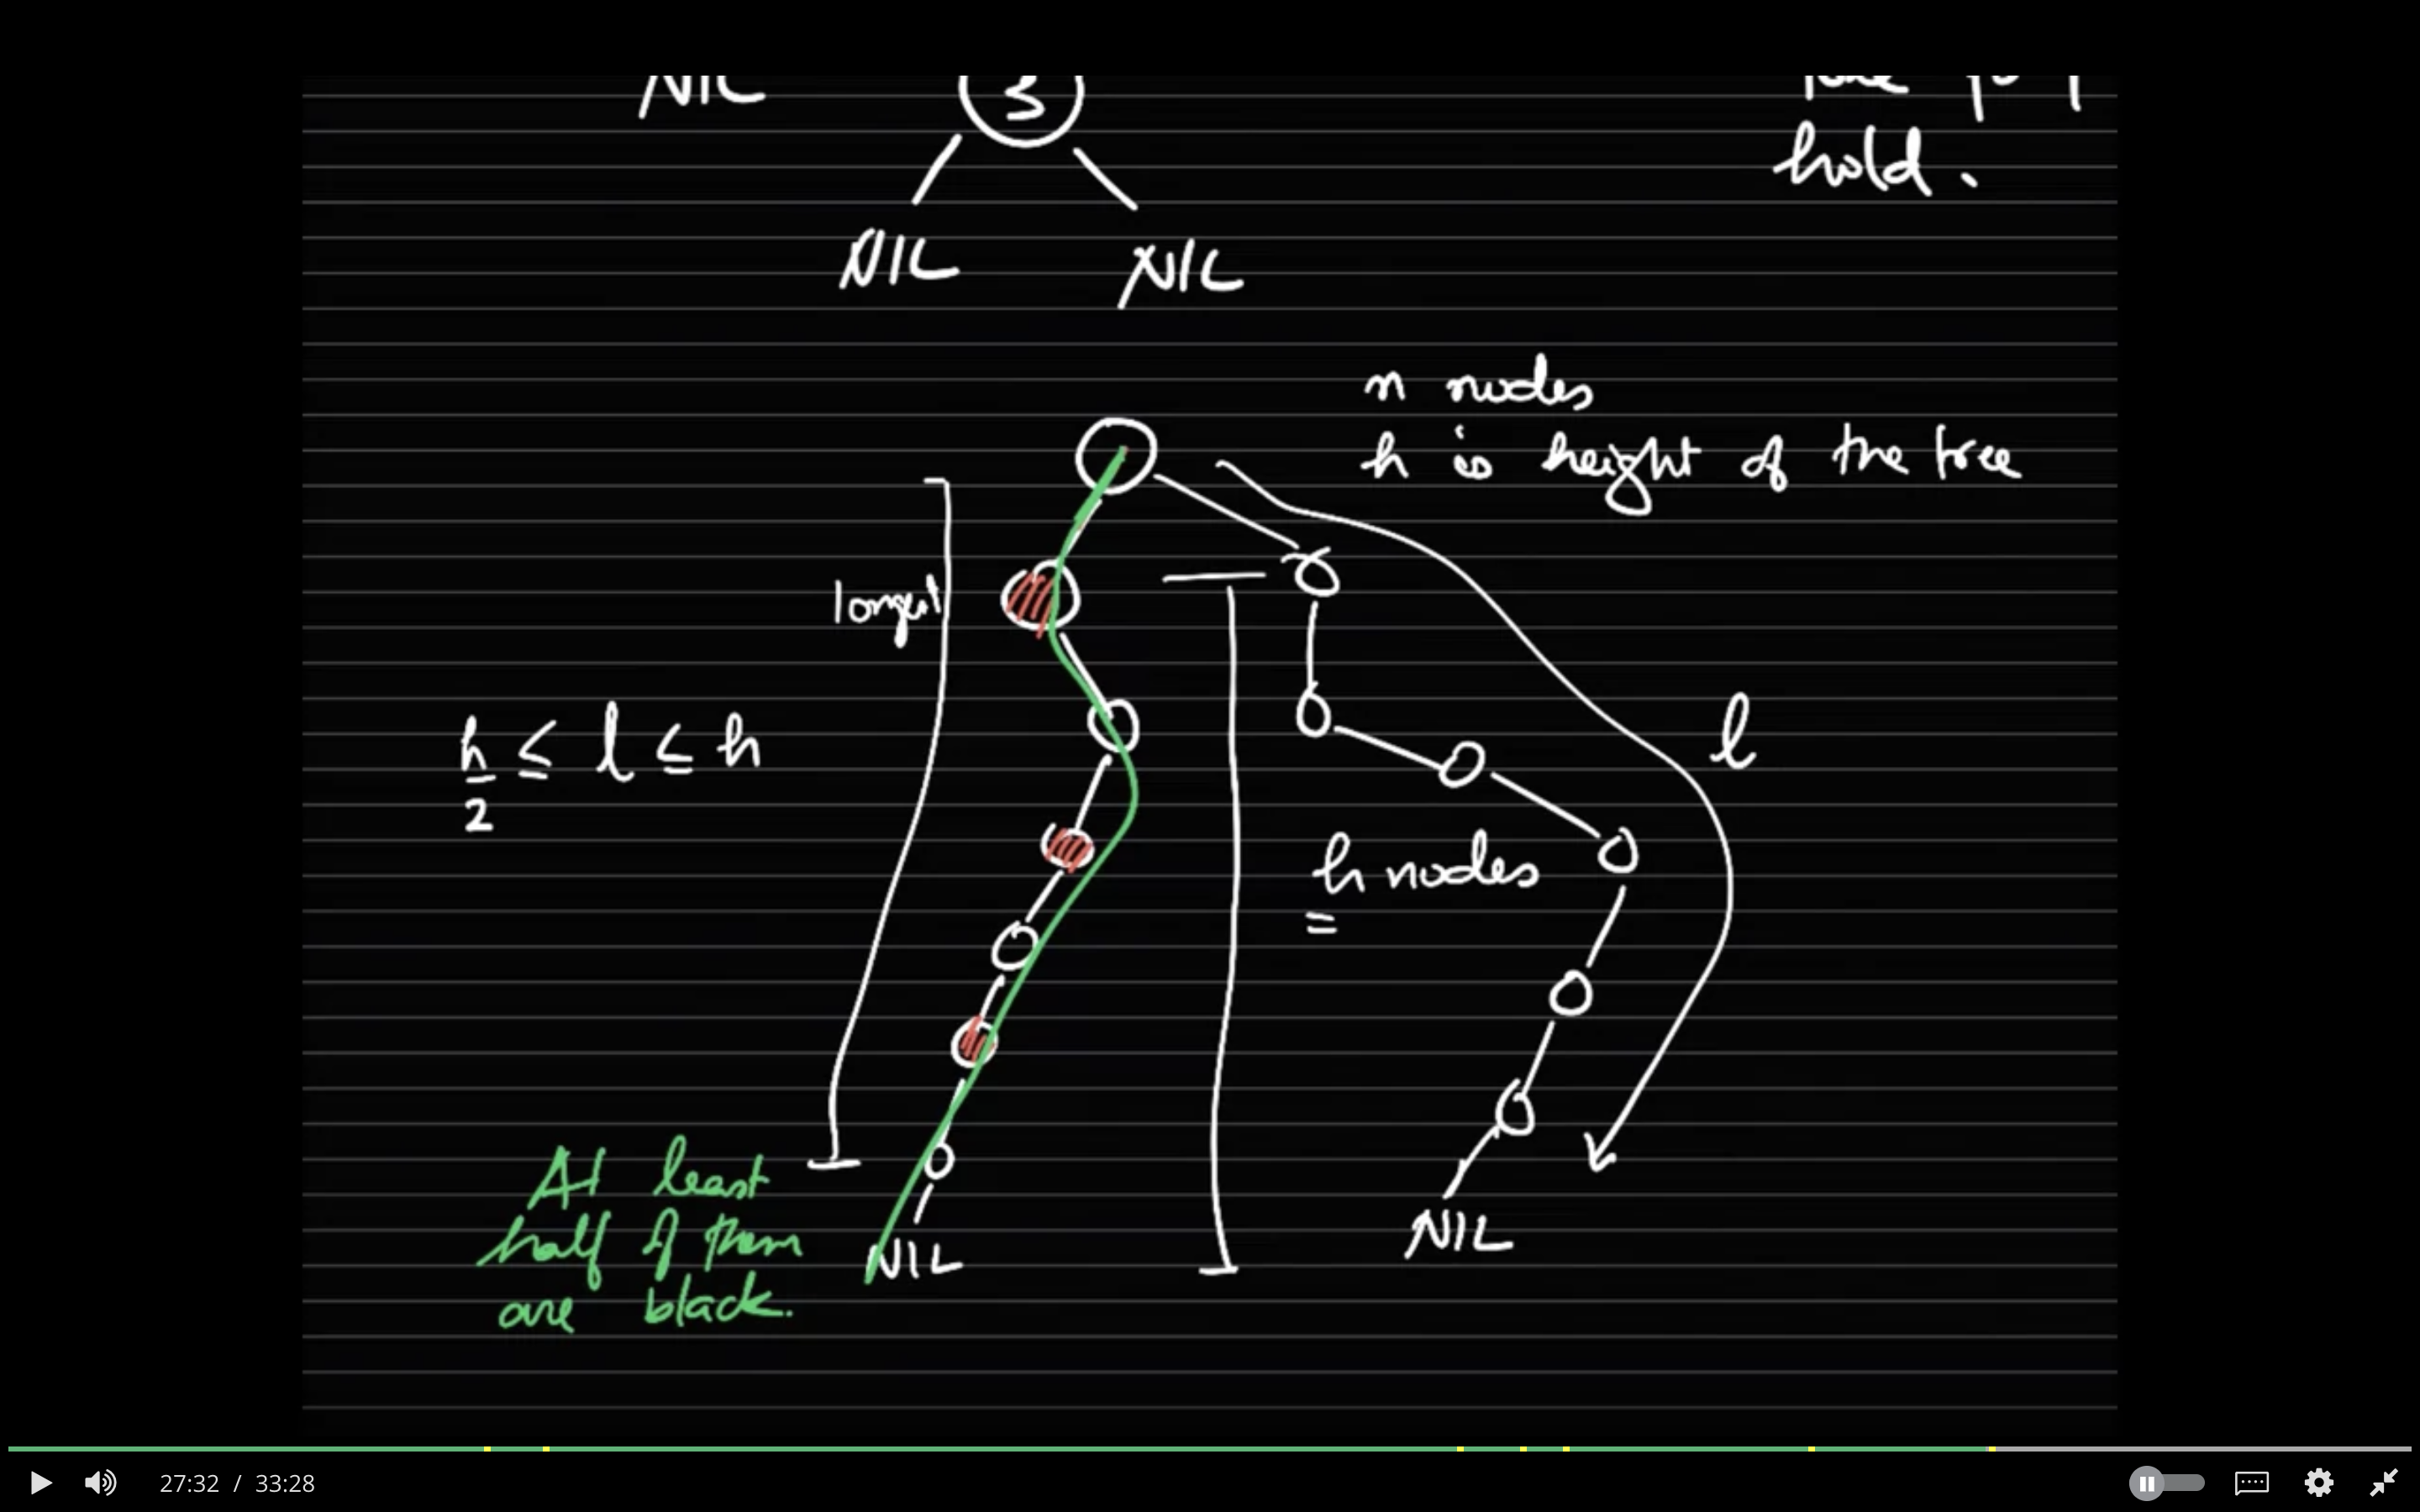 NIL
3
hold.
NIL NIL
n nodes
h is height of the tree
longest
h/2 ≤ l ≤ h
l
h nodes
At least
half of them
are black.
NIL
NIL
27:32 / 33:28